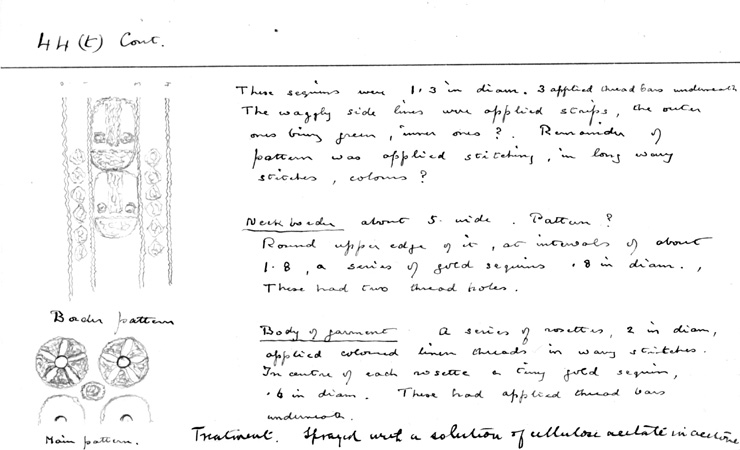 44(t) Cont.
These sequins were 1.3 in diam. 3 applied thread bars underneath
The waggly side lines were applied strips, the outer
ones being green, inner ones ?. Remainder of
pattern was applied stitching, in long wavy
stitches, colours ?
Neck border about 5. wide. Pattern ?
Round upper edge of it, at intervals of about
1.8, a series of gold sequins .8 in diam.,
These had two thread holes.
Border pattern
Body of garment A series of rosettes, 2 in diam,
applied coloured linen threads in wavy stitches.
In centre of each rosette a tiny gold sequin,
.6 in diam. These had applied thread bars
underneath.
Main pattern.
Treatment. Sprayed with a solution of cellulose acetate in acetone